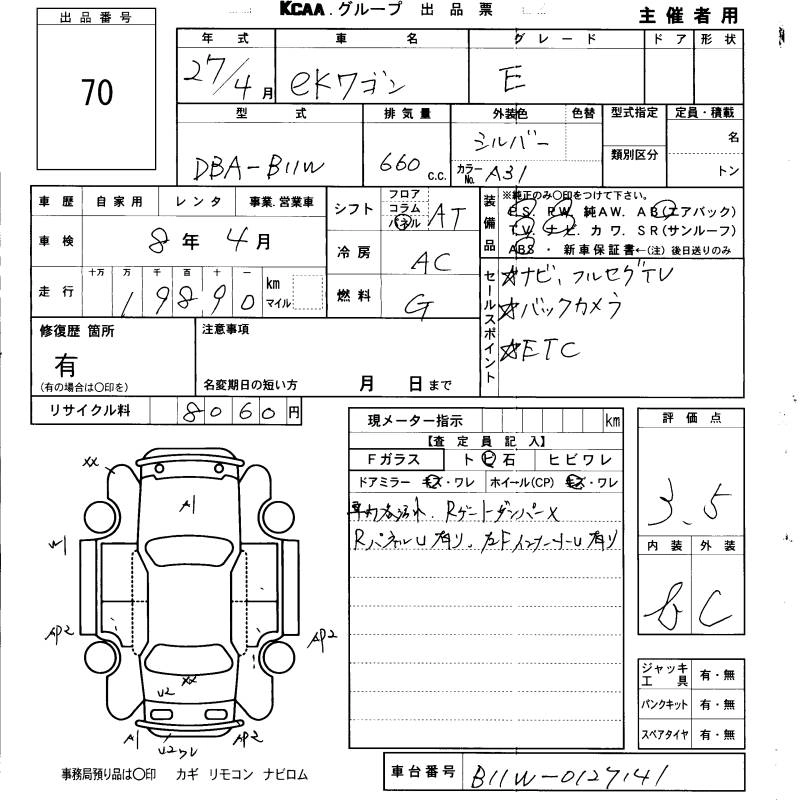 KCAA.グループ 出品票
主催者用
出品番号
70
年式 車名 グレード ドア 形状
27/4月 eKワゴン E
型式 排気量 外装色 色替 型式指定 定員・積載
DBA-B11W 660 C.C. シルバー 名
類別区分
カラーNo. A31 トン
車歴 自家用 レンタ 事業.営業車
シフト フロア コラム パネル AT
装備品 ※純正のみ〇印をつけて下さい。
P.S. P.W. 純AW. AB(エアバック)
T.V. ナビ. カワ. SR(サンルーフ)
ABS ・ 新車保証書←(注) 後日送りのみ
車検 8年4月
冷房 AC
走行 十万 万 千 百 十 一 km マイル
19890
燃料 G
セールスポイント
☆ナビ、フルセグTV
☆バックカメラ
☆ETC
修復歴 箇所
有
(有の場合は〇印を)
注意事項
名変期日の短い方 月 日まで
リサイクル料 8060円
現メーター指示 km
【査定員記入】
Fガラス トビ石 ヒビワレ
ドアミラー キズ・ワレ ホイール(CP) キズ・ワレ
Rゲートダンパー×
RパネルU有り、左FインナーU有り
評価点
3.5
内装 外装
b C
ジャッキ工具 有・無
パンクキット 有・無
スペアタイヤ 有・無
XX
A1
W1
AP2
AP2
XX
U2
A1
U2ワレ
AP2
事務局預り品は〇印 カギ リモコン ナビロム
車台番号 B11W-0127141